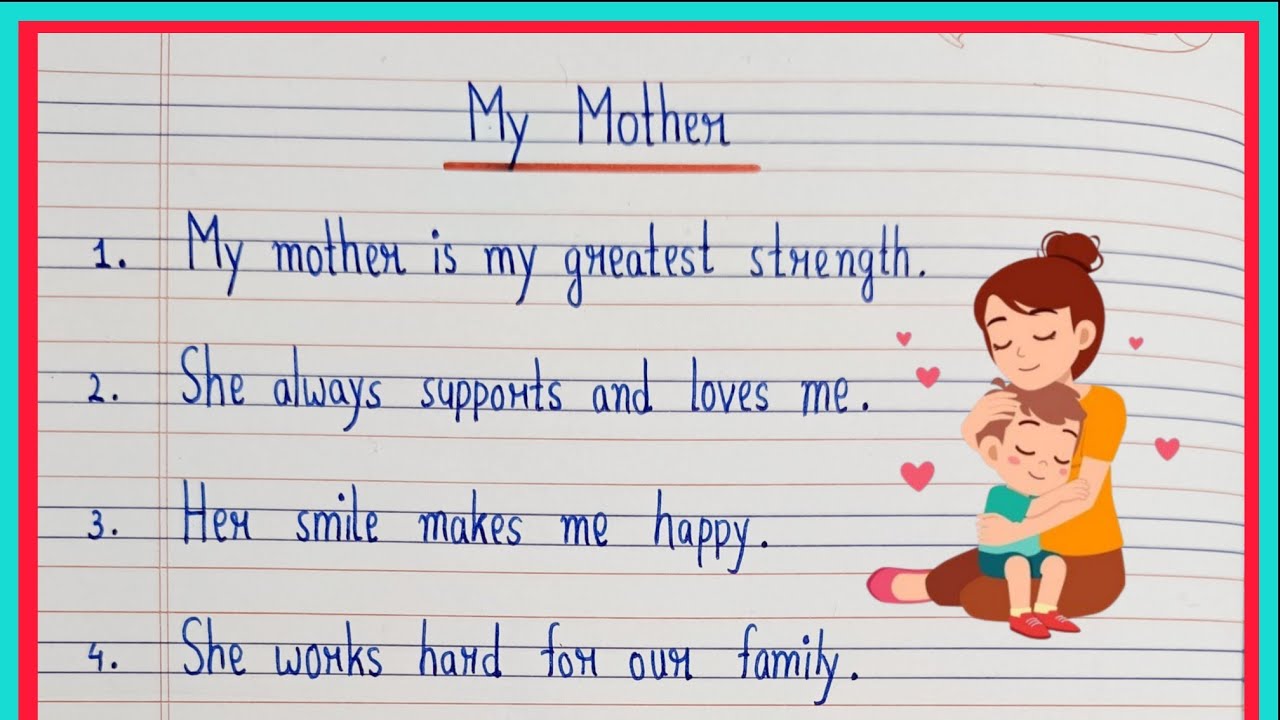 My Mother
1. My mother is my greatest strength.
2. She always supports and loves me.
3. Her smile makes me happy.
4. She works hard for our family.